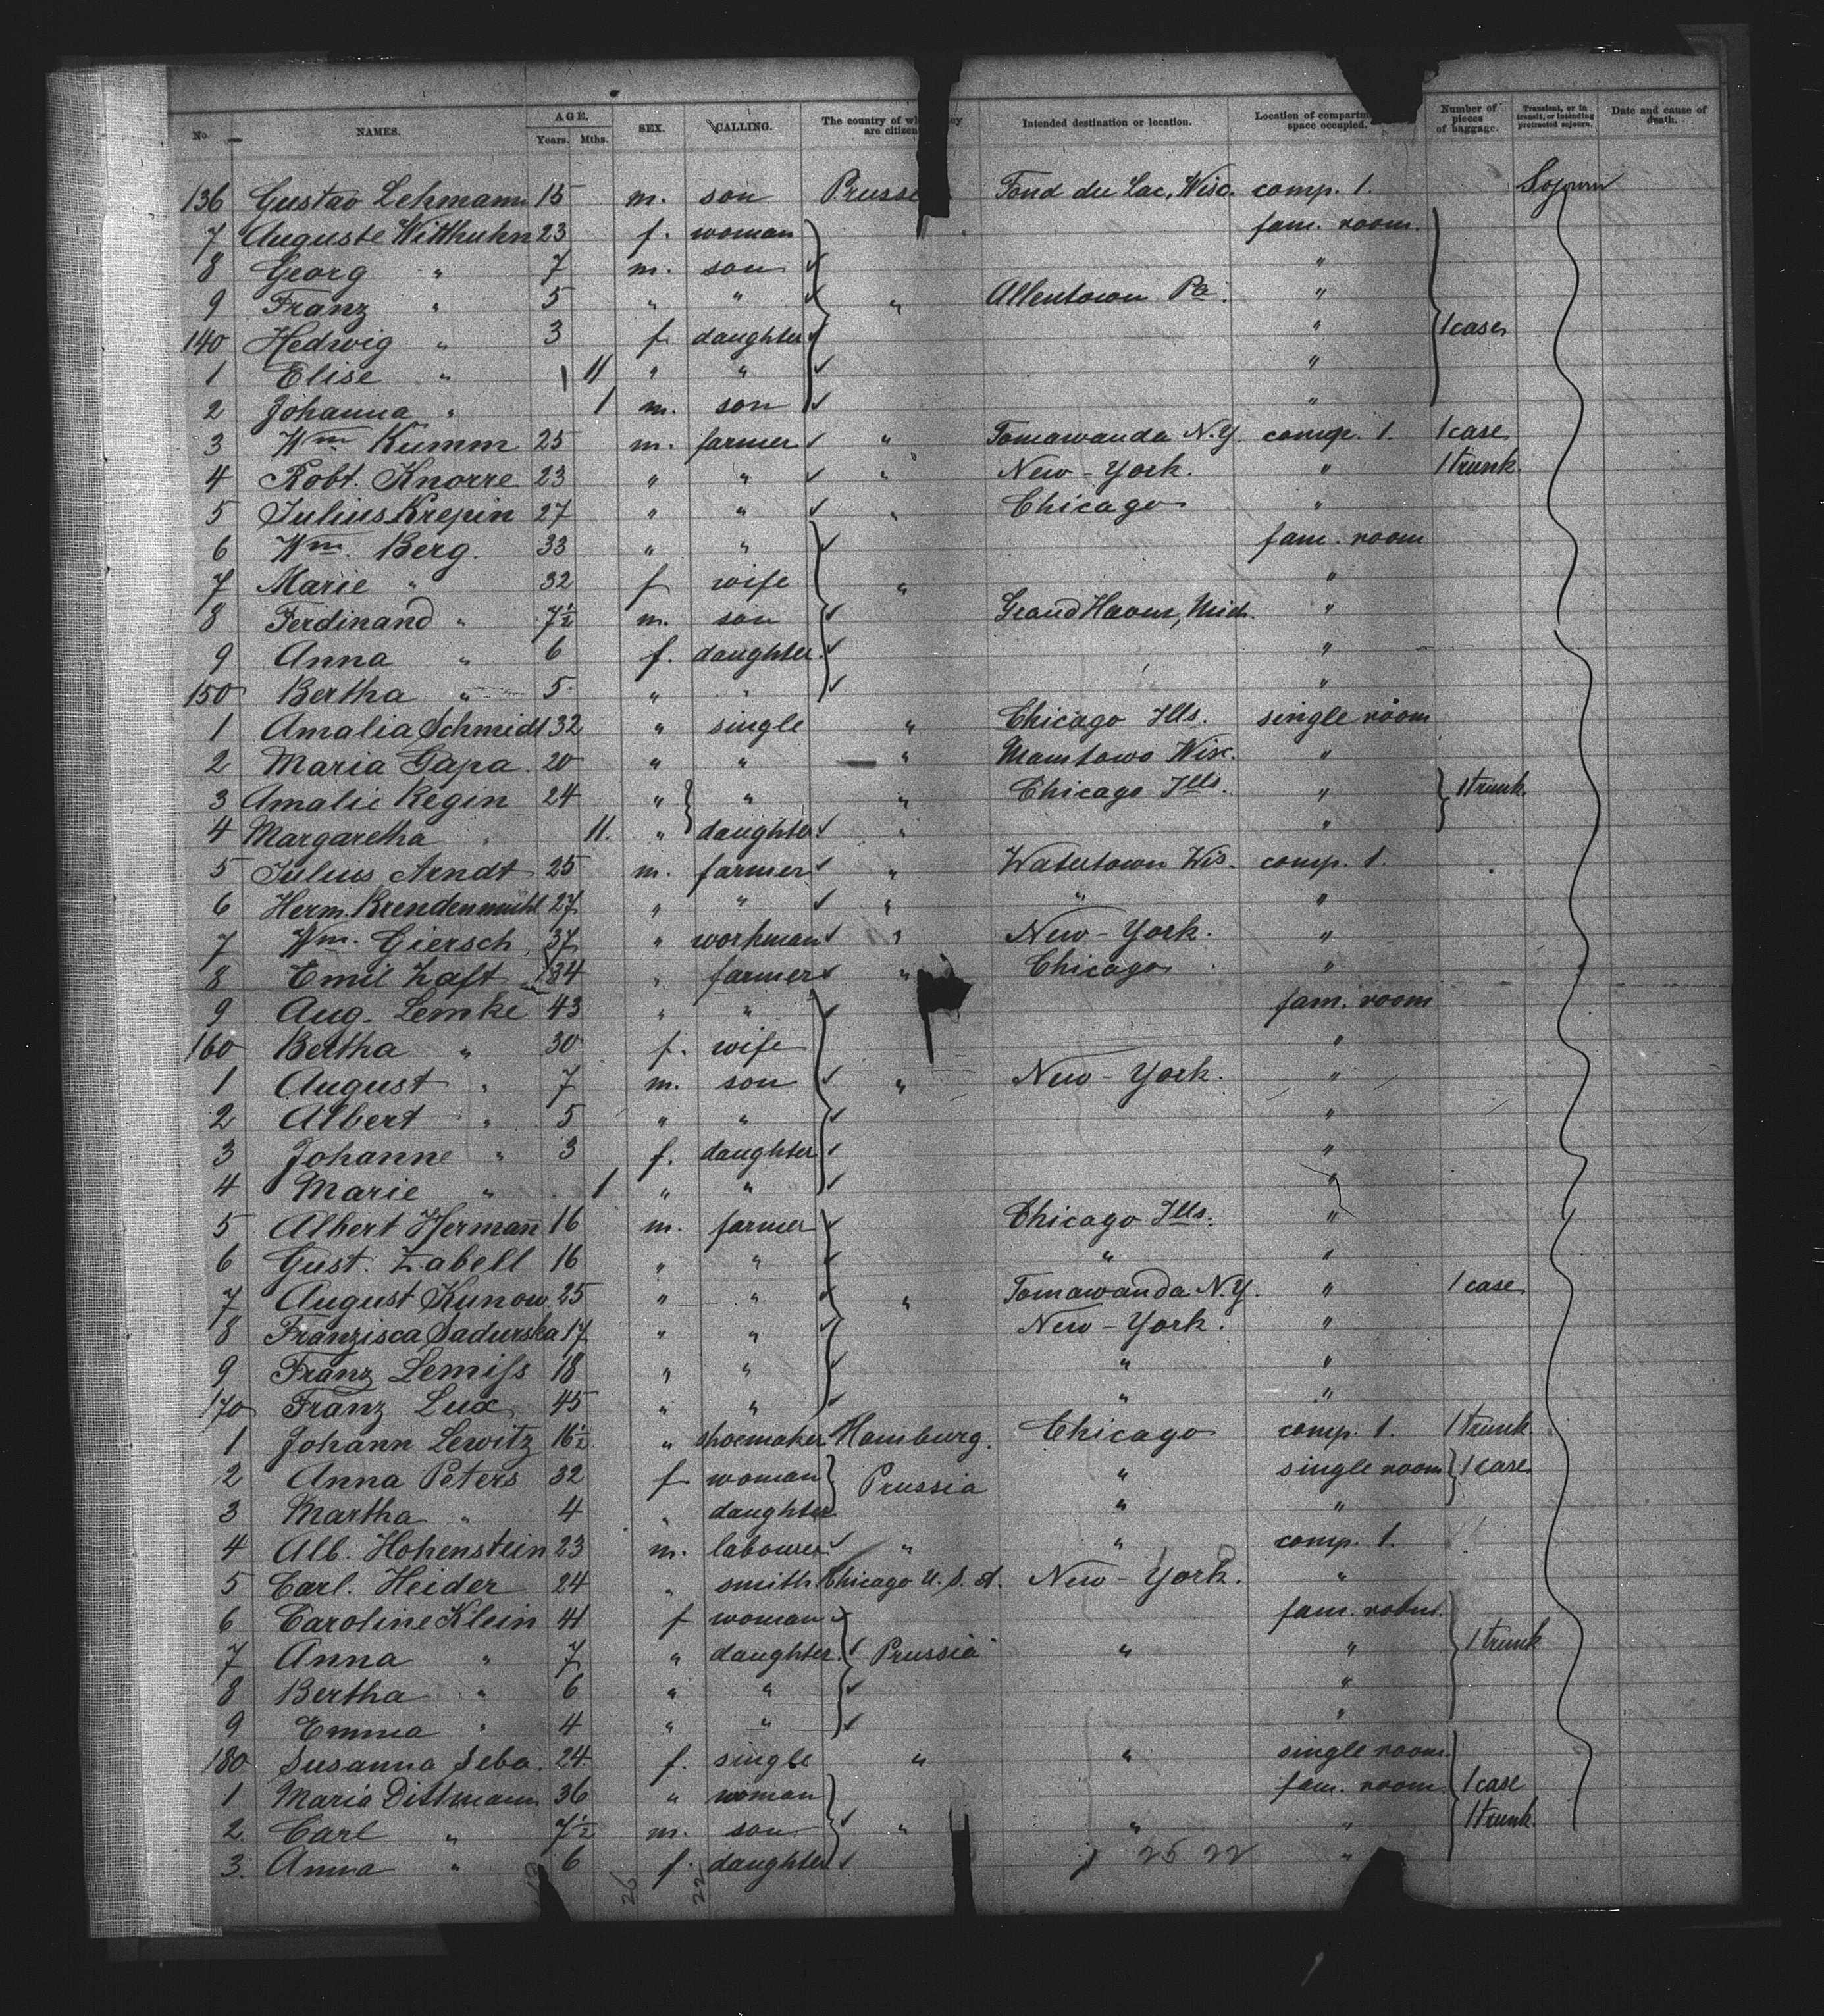 No. NAMES. AGE. Years. Mths. SEX. CALLING. The country of wh ey are citizen Intended destination or location. Location of compartm space occupied. Number of pieces of baggage. Transient, or in transit, or intending protracted sojourn. Date and cause of death.
136 Gustav Lehmann 15 m. son Pruss Fond du Lac, Wisc. comp. 1. Sojourn
7 Auguste Witthuhn 23 f. woman fam. room.
8 Georg " 7 m. son "
9 Franz " 5 " " " Allentown Pa. "
140 Hedwig " 3 f. daughter " 1 case
1 Elise " 11 " " "
2 Johanna " 1 m. son "
3 Wm Kumm 25 m. farmer " Tomawanda N.Y. comp. 1. 1 case
4 Robt. Knorre 23 " " " New-York. " 1 trunk
5 Julius Krepin 27 " " " Chicago "
6 Wm. Berg. 33 " " fam. room
7 Marie " 32 f wife " "
8 Ferdinand " 7½ m. son Grand Haven, Mich. "
9 Anna " 6 f. daughter "
150 Bertha " 5 " " "
1 Amalia Schmidt 32 " single " Chicago Ills. single room
2 Maria Gapa. 20 " " " Wisc. "
3 Amalie Regin 24 " " " Chicago Ills. " 1 trunk.
4 Margaretha " 11. " daughter " "
5 Julius Arndt 25 m. farmer " Watertown Wis. comp. 1.
6 Herm. Krendenmühl 27 " " " " "
7 Wm. Giersch 37 " workman " New-York. "
8 Emil Zaft 34 " farmer " Chicago "
9 Aug. Lemke 43 " " fam. room
160 Bertha " 30 f. wife "
1 August " 7 m. son " New-York. "
2 Albert " 5 " " "
3 Johanne " 3 f. daughter "
4 Marie " 1 " " "
5 Albert Hermañ 16 m. farmer Chicago Ills. "
6 Gust. Zabell 16 " " " "
7 August Kunow. 25 " " " Tomawanda N.Y. " 1 case
8 Franzisca Sadurska 17 " " New-York. "
9 Franz Lemiſs 18 " " " "
170 Franz Lux 45 " " " "
1 Johann Lewitz 16½ " shoemaker Hamburg. Chicago comp. 1. 1 trunk
2 Anna Peters 32 f woman Prussia " single room 1 case
3 Martha " 4 " daughter " "
4 Alb. Hohenstein 23 m. labourer " " comp. 1.
5 Carl. Heider 24 " smith Chicago U.S.A. New-York. "
6 Caroline Klein 41 f woman fam. room.
7 Anna " 7 " daughter. Prussia " " 1 trunk
8 Bertha " 6 " " "
9 Emma " 4 " " "
180 Susanna Seba. 24 f. single " " single room
1 Maria Dittmann 36 " woman fam. room 1 case
2 Carl " 7½ m. son " " " 1 trunk.
3. Anna " 6 f. daughter "
25 22
26 22